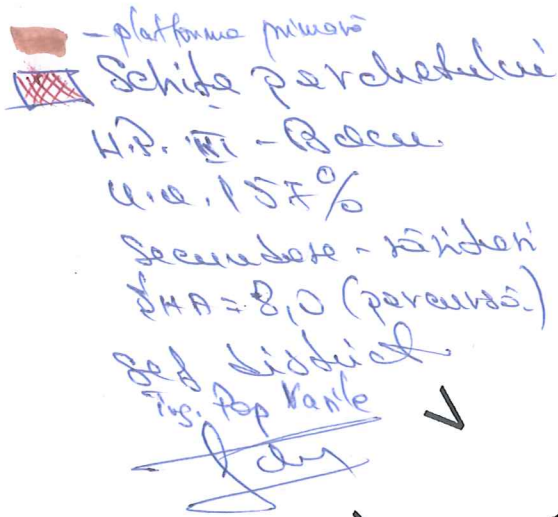 - platforma primară
Schița parchetului
U.P. III - Bacu
u.a. 157%
Secundare - rărituri
SHA = 8,0 (parcursă)
șef district
ing. Pop Vasile